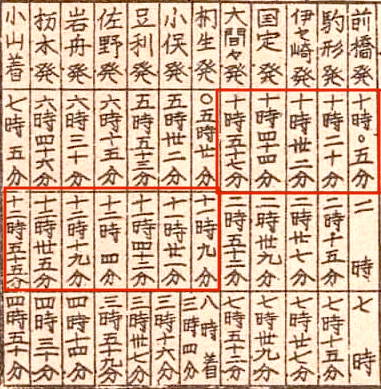 前橋発 十時〇五分 二時 七時
駒形発 十時二十分 二時十五分 七時十五分
伊セ崎発 十時丗二分 二時廿七分 七時廿七分
国定発 十時四十四分 二時丗九分 七時丗九分
大間々発 十時五十七分 二時五十二分 七時五十二分
桐生発 〇五時廿分 十一時九分 八時着
三時四分
小俣発 五時丗二分 十一時廿分 三時十六分
足利発 五時五十三分 十一時四十二分 三時丗七分
佐野発 六時十五分 十二時四分 三時五十九分
岩舟発 六時三十分 十二時十九分 四時十四分
杤木発 六時四十六分 十二時丗五分 四時三十分
小山着 七時五分 十二時五十五分 四時五十分